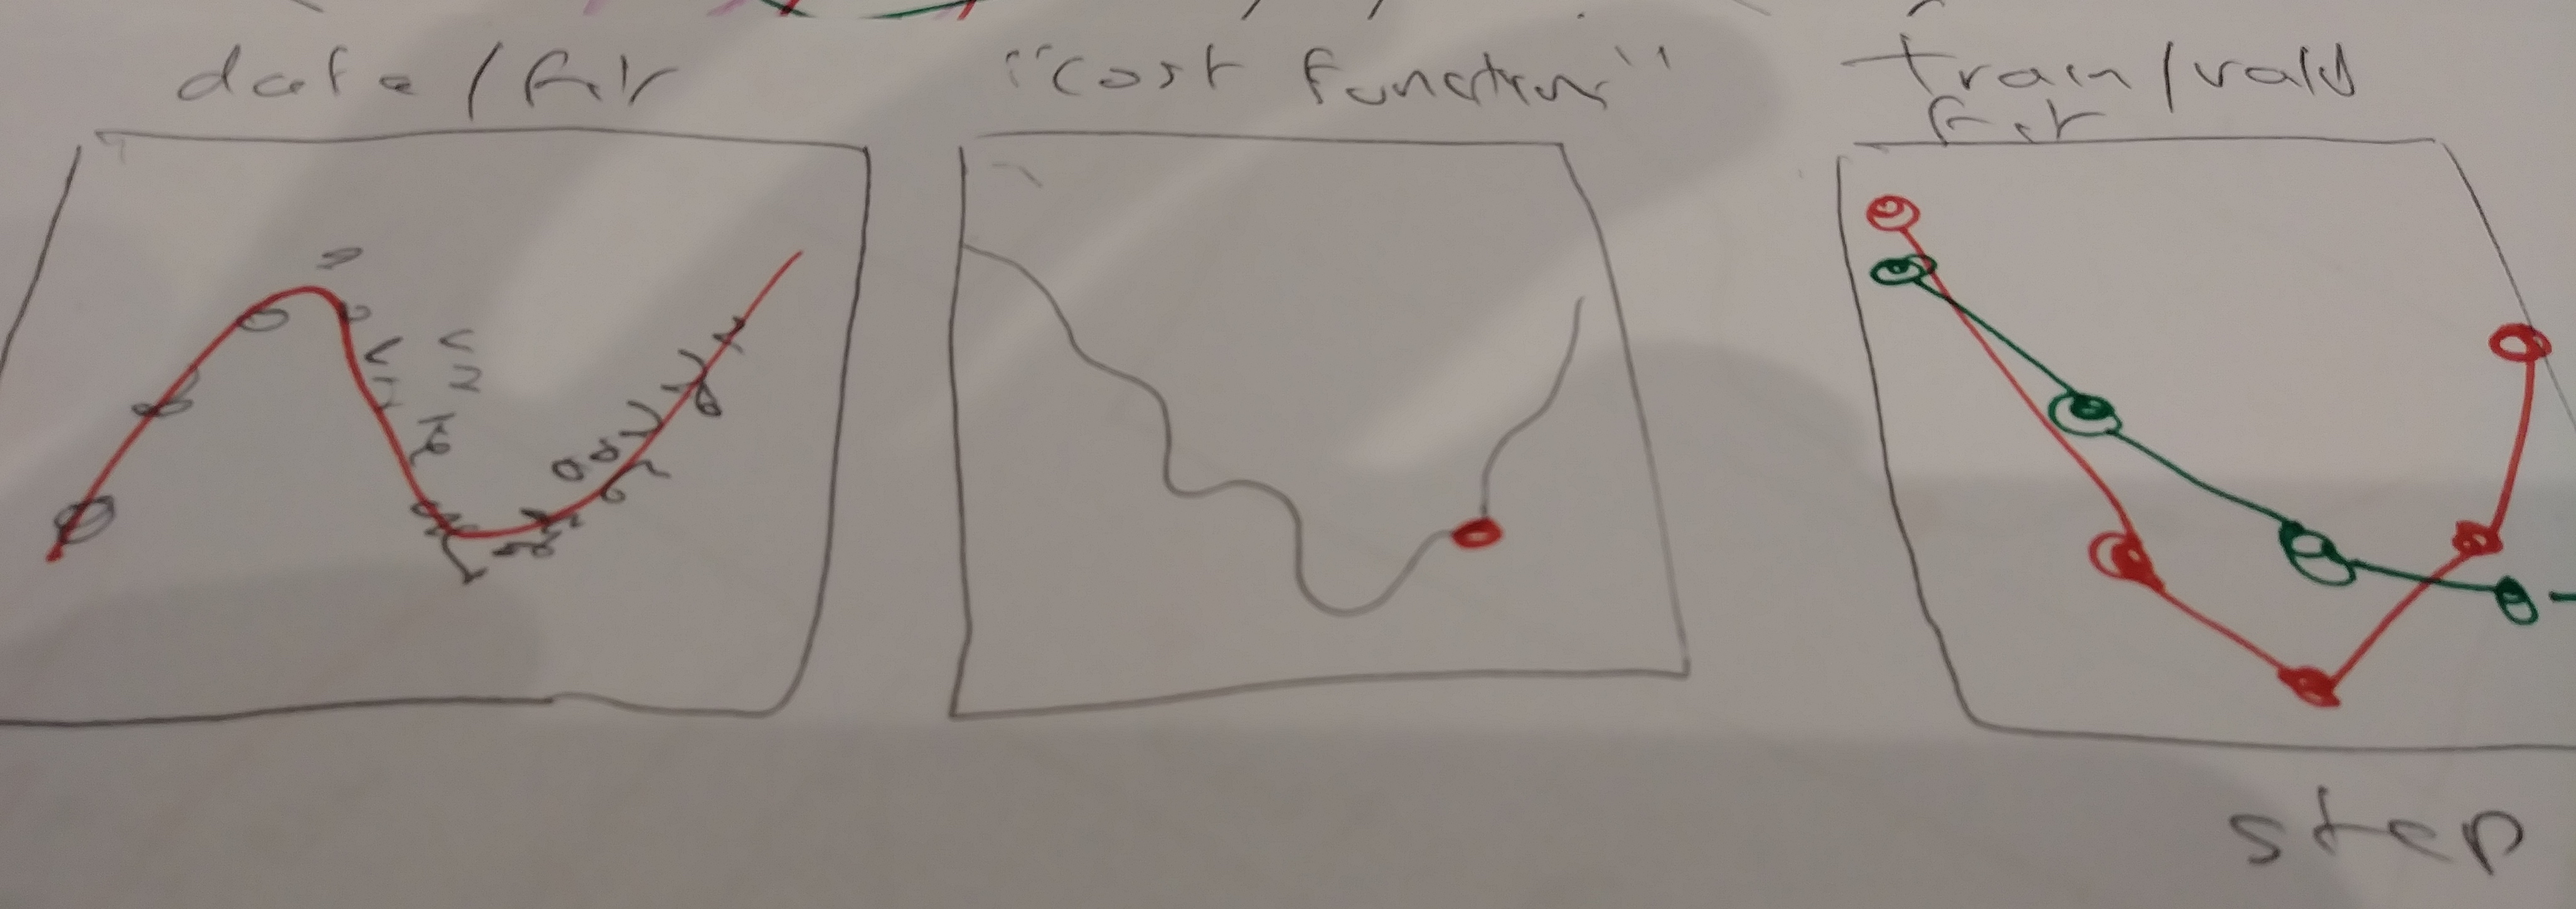 data/fit
"cost function"
train/valid
fit
step